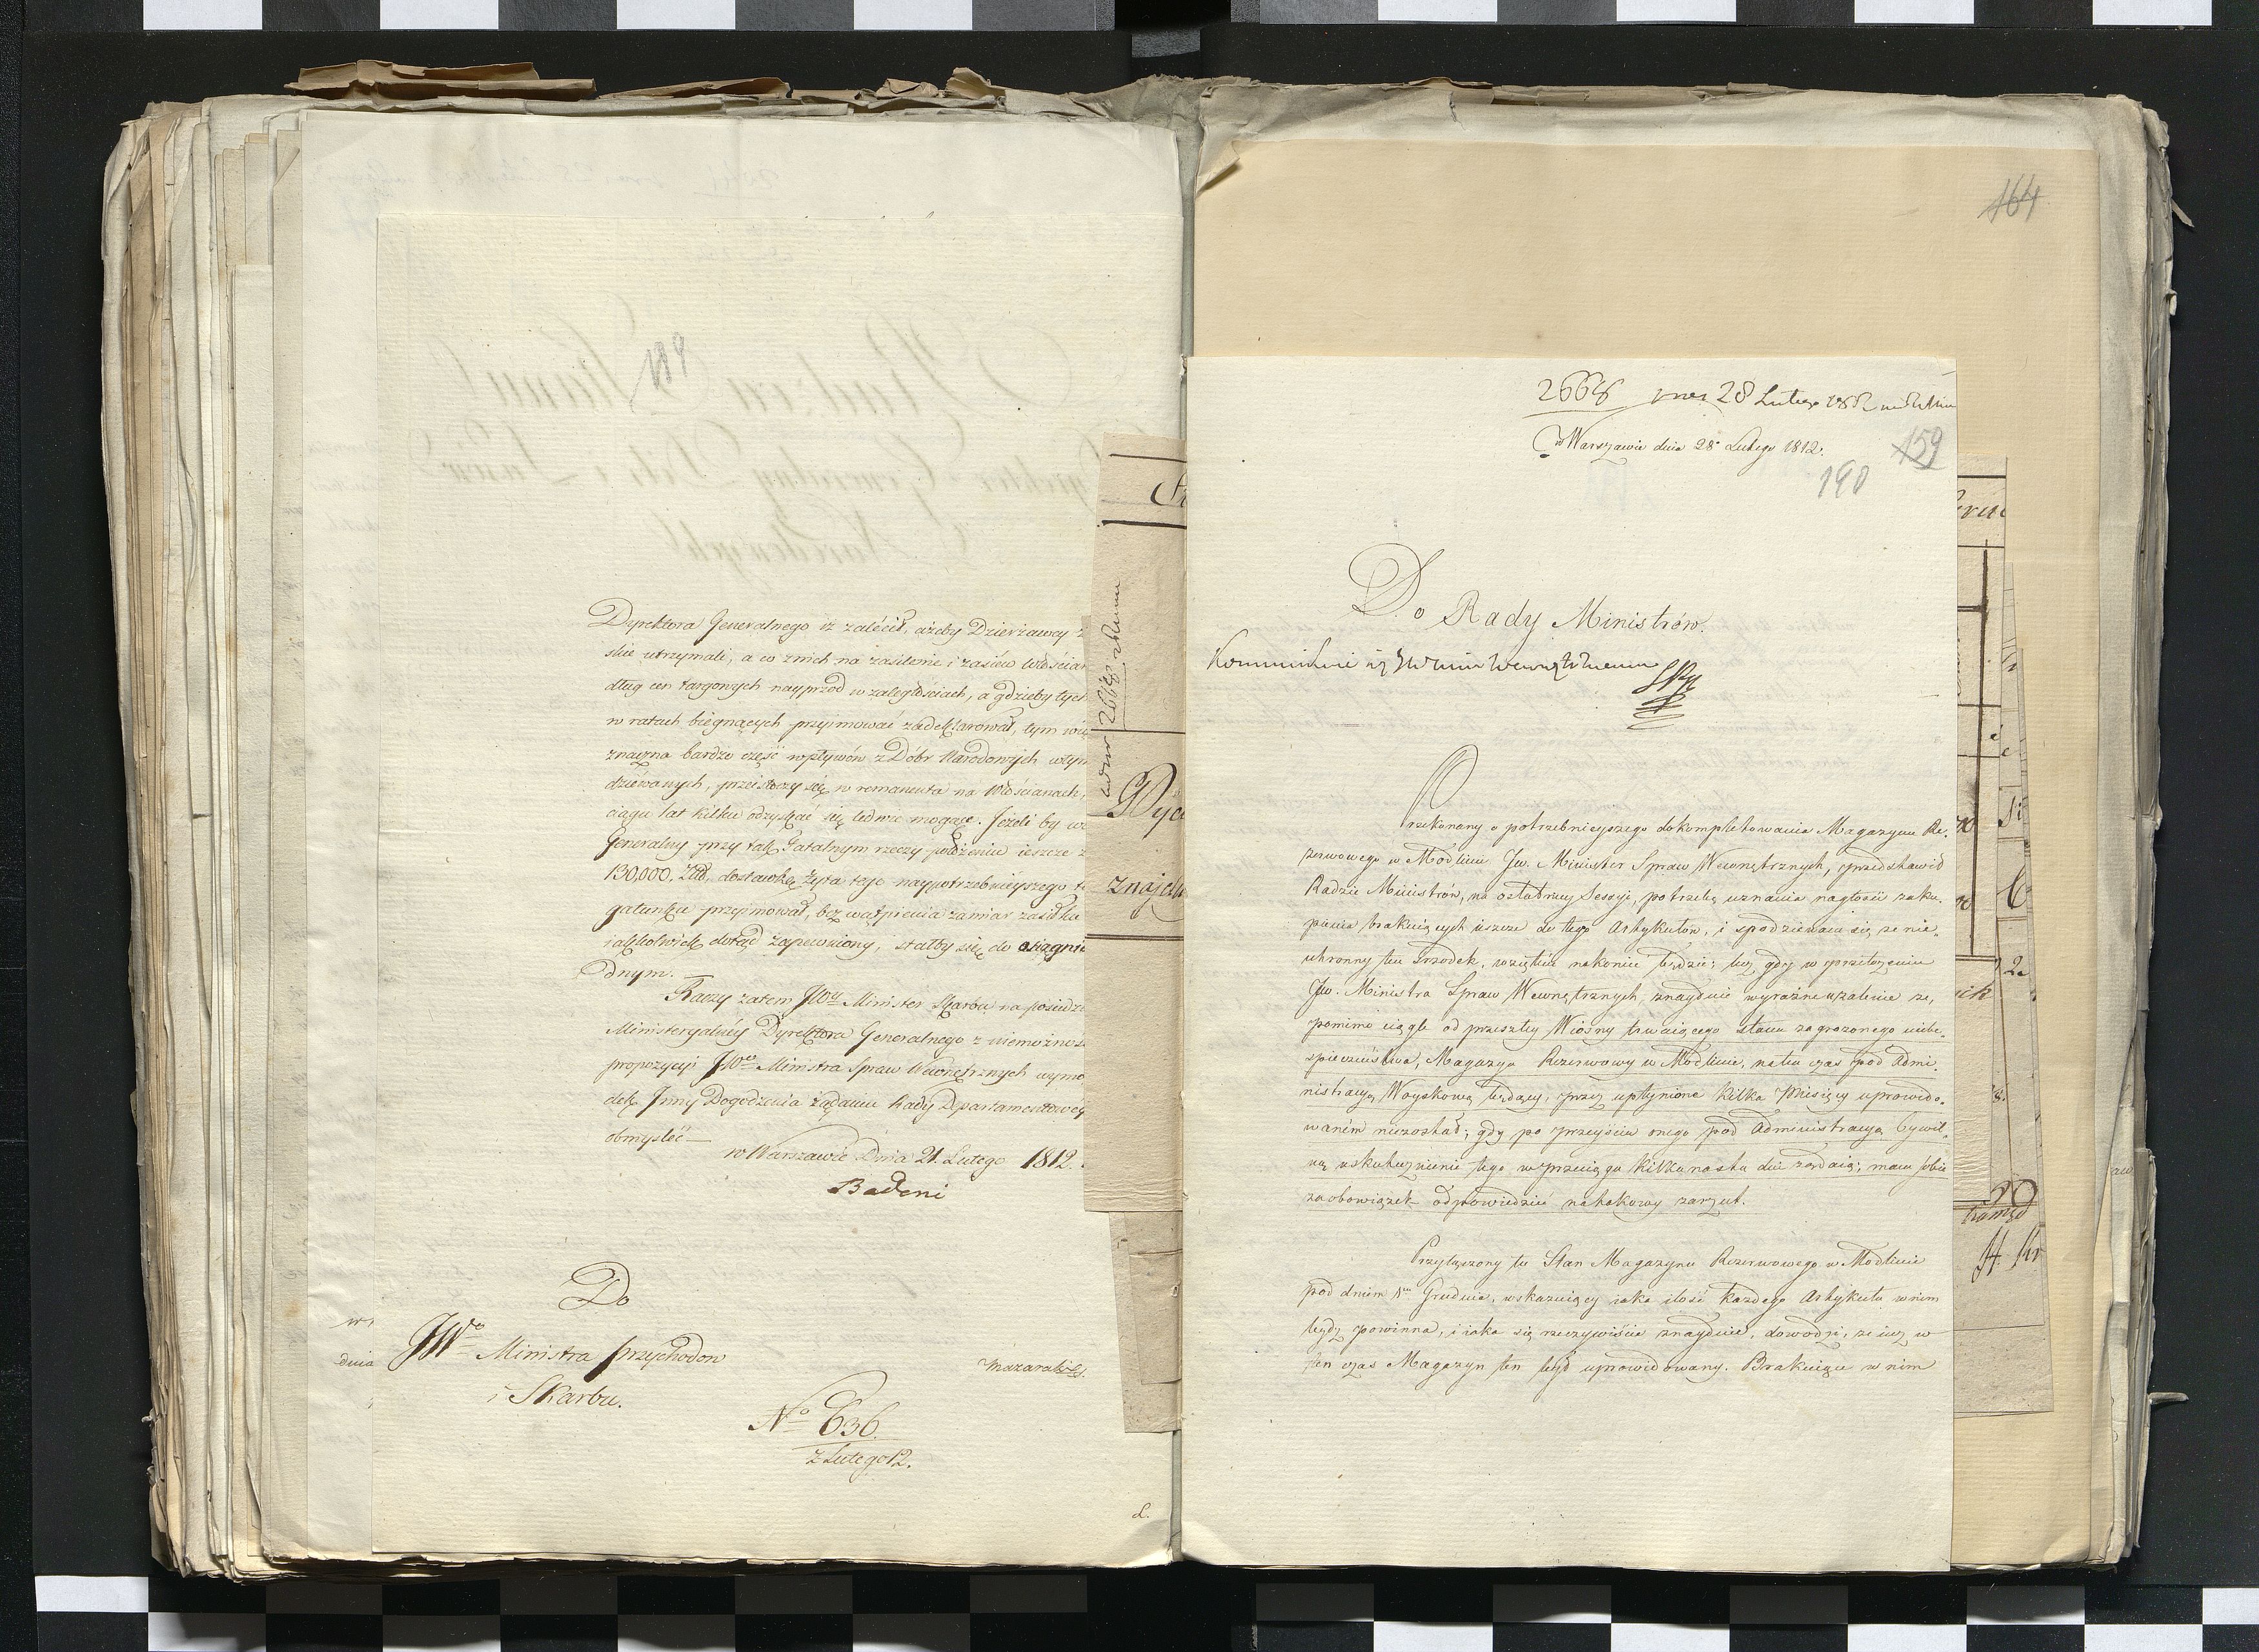 189
Dyrektora Generalnego iż zalécił, ażeby Dzierżawcy z
skie utrzymali, a co z nich na zasilenie i zasiew Włościan
dług cen targowych nayprzód w zaległościach, a gdzieby tych
w ratach biegnących przyjmować zadeklarował, tym
znaczna bardzo część wpływów z Dóbr Narodowych w tym
dziewanych, przeistoczy się w remanenta na Włościanach,
ciągu lat kilku odzyskać się ledwie mogące. Jeżeli by
Generalny przy tak fatalnym rzeczy położeniu ieszcze z
130,000. Złł. dostawkę żyta tego naypotrzebnieyszego
gatunku przyjmował, bez wątpienia zamiar zasiłku
iakkolwiek dotąd zapewniony, stałby się do osiągnie
dnym.
Raczy zatem JWny Minister Skarbu na posiedze
Ministeryalnéy Dyrektora Generalnego z niemożnoś
propozycyi JWo Ministra Spraw Wewnętrznych wymo
dek Jnny Dogodzenia żądaniu Rady Departamentowéy
obmyslić
w Warszawie Dnia 21. Lutego 1812.
Badeni
Do
JWo Ministra Przychodow
i Skarbu.
No 636.
z Lutego 12.
wr
dnia
2668
Dyr
znajdu
164
2668 28 Lutego
w Warszawie dnia 28o Lutego 1812.
159
190
Do Rady Ministrów.
Przekonany o potrzebnieyszego dokompletowania Magazynu Re-
zerwowego w Modlinie Jw. Minister Spraw Wewnętrznych, przedstawił
Radzie Ministrów, na ostatniey Sessyi, potrzebę uznania nagłości zaku-
pienia brakuiących ieszcze do tego Artykułów, i spodziewam się że nie-
uchronny ten srzodek, wzięty nakoniec będzie; lecz gdy w przełożeniu
Jw. Ministra Spraw Wewnętrznych, znayduie wyraźne użalenie że,
pomimo ciągle od przeszłey Wiosny trwaiącego stanu zagrożonego niebe-
spieczeństwa, Magazyn Rezerwowy w Modlinie, na ten czas pod Admi-
nistracyą Woyskową będący, przez upłynione kilka Miesięcy uprowido-
waném niezostał; gdy po przeyściu onego pod Administracyą Cywil-
ną uskutecznienie tego w przeciągu kilkunastu dni żądaią; mam sobie
za obowiązek odpowiedzieć na takowy zarzut.
Przyłączony tu Stan Magazynu Rezerwowego w Modlinie
pod dniem 1m Grudnia, wskazuiący iaka ilość każdego Artykułu w nim
bydź powinna, i iaka się rzeczywiście znayduie, dowodzi, że iuż w
ten czas Magazyn ten był uprowidowany. Brakuiące w nim